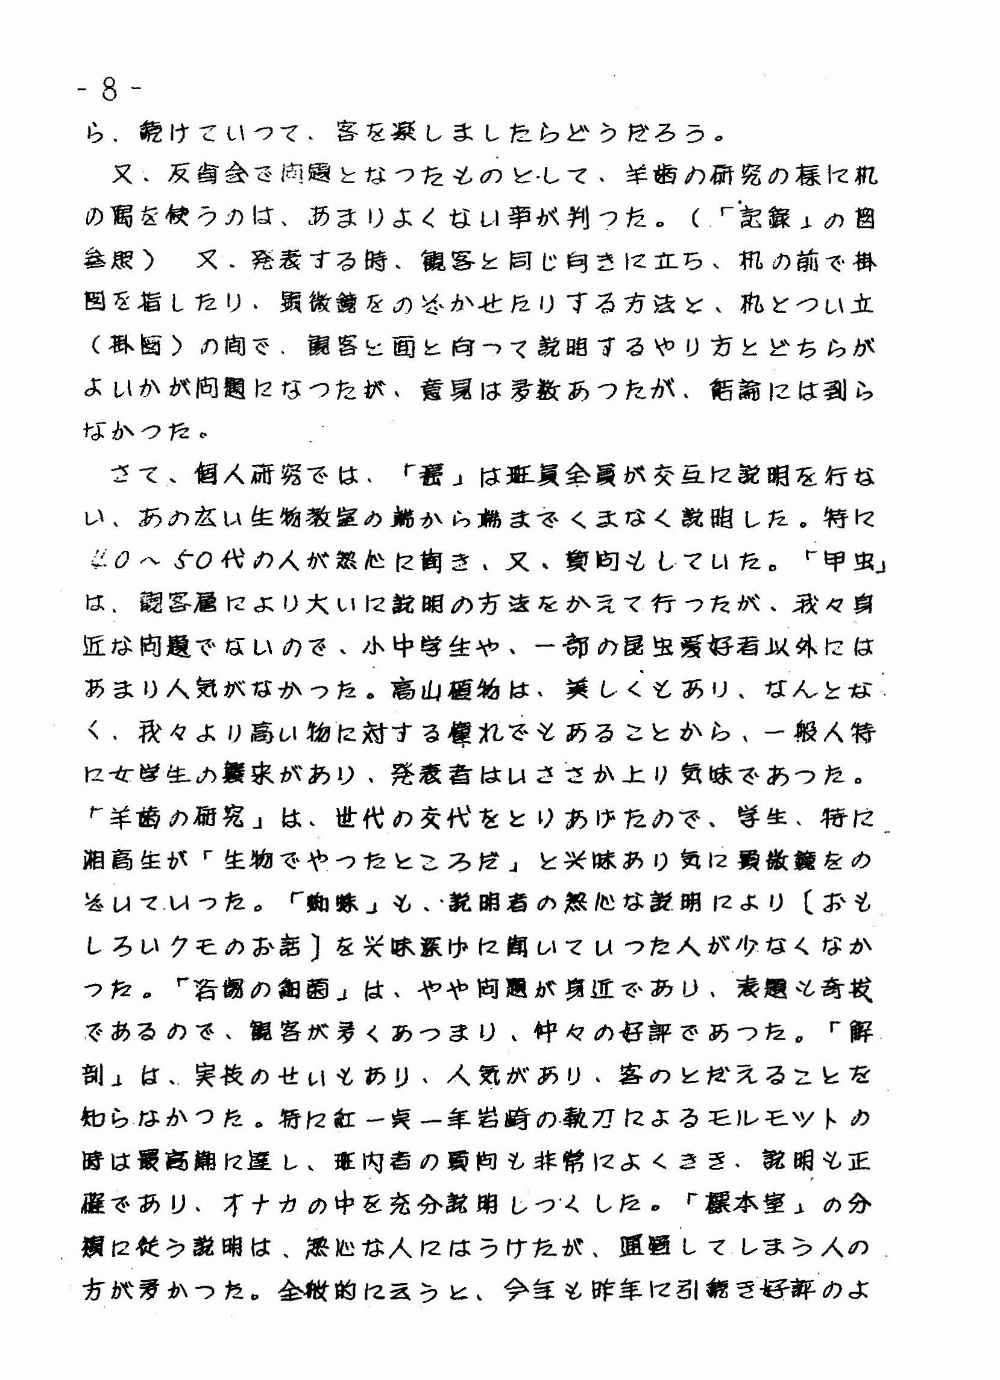 - 8 -
ら、続けていつて、客を楽しましたらどうだろう。
又、反省会で問題となつたものとして、羊歯の研究の様に机
の間を使うのは、あまりよくない事が判つた。(「記録」の図
参照) 又、発表する時、観客と同じ向きに立ち、机の前で掛
図を指したり、顕微鏡をのぞかせたりする方法と、机とつい立
(掛図)の間で、観客と面と向って説明するやり方とどちらが
よいかが問題になつたが、意見は多数あつたが、結論には到ら
なかつた。
さて、個人研究では、「」は班員全員が交互に説明を行な
い、あの広い生物教室の端から端までくまなく説明した。特に
40～50代の人が熱心に聞き、又、質問もしていた。「甲虫」
は、観客層により大いに説明の方法をかえて行つたが、我々身
近な問題でないので、小中学生や、一部の昆虫愛好者以外には
あまり人気がなかつた。高山植物は、美しくもあり、なんとな
く、我々より高い物に対する憧れでもあることから、一般人特
に女学生の襲来があり、発表者はいささか上り気味であつた。
「羊歯の研究」は、世代の交代をとりあげたので、学生、特に
湘高生が「生物でやつたところだ」と興味あり気に顕微鏡をの
ぞいていつた。「蜘蛛」も、説明者の熱心な説明により[おも
しろいクモのお話]を興味深げに聞いていつた人が少なくなか
つた。「若場の細菌」は、やや問題が身近であり、表題も奇抜
であるので、観客が多くあつまり、仲々の好評であつた。「解
剖」は、実技のせいもあり、人気があり、客のとだえることを
知らなかつた。特に紅一点一年岩崎の執刀によるモルモツトの
時は最高潮に達し、班内者の質問も非常によくきき、説明も正
確であり、オナカの中を充分説明しつくした。「標本室」の分
類に従う説明は、熱心な人にはうけたが、通過してしまう人の
方が多かつた。全般的に云うと、今年も昨年に引続き好評のよ